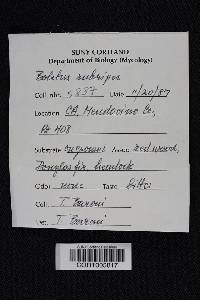 SUNY CORTLAND
Department of Biology (Mycology)
Boletus rubripes
Coll. nbr. 5837 Date 11/20/87
Location CA, Mendocino Co.,
Rt 408
Substrate Assoc. redwood,
Douglas fir, hemlock
Odor none Taste bitter
Coll. T. Baroni
Det. T. Baroni